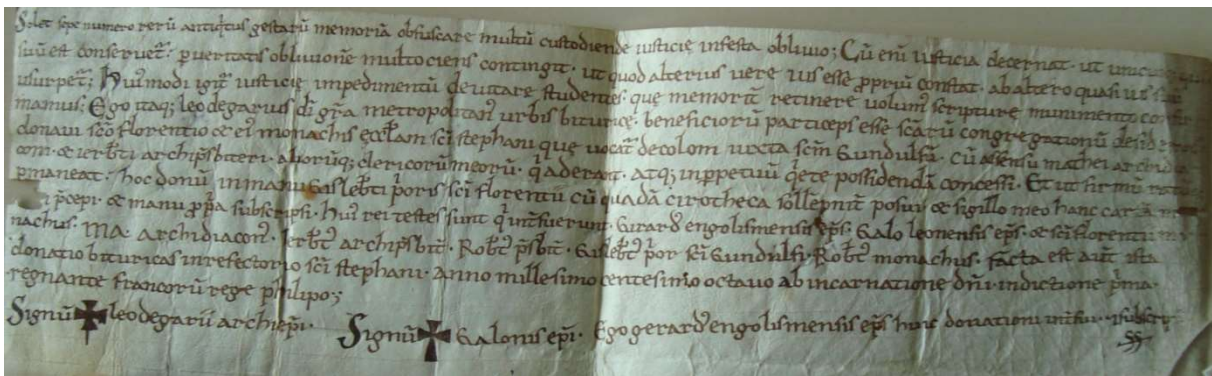 Solet sepe numero rerū antiq̓tus gestarū memoriā obfuscare multū custodiende iusticię infesta oblivio; Cū eni iusticia decernat ut unicuiq;
suū est conservet᷑. p veritatis oblivionē multociens contingit. ut quod alterius vere ius esse ppriū constat. ab altero quasi ius suū
usurpet᷑; Hui᷒modi igit᷑ iusticię impedimentū devitare studentes. que memorit̄ retinere volum᷒ scripture munimento confir
mamus; Ego itaq; leodegarius dī grā metropolitan᷒ urbis biturice. beneficiorū particeps esse scārū congregationū desiderans
donavi scō florentio & ei᷒ monachis ęcclam scī stephani que vocat᷑ decolom iuxta scm̄ Gundulfū. Cū assensu mathei archidia
com. & ierbti archipsbiteri. aliorūq; clericorū meorū. qͥ aderant. atq; inppetuū qͥete possidendā concessi. Et ut firmū ratūq;
pmaneat. hoc donū inmanu Gislebti pͥoris scī florentii cū quadā cirotheca sollēpnit̄ posui & sigillo meo hanc cartā
pcepi. & manu ppa subscripsi. Hui᷒ rei testes sunt qͥ int̄fuerunt. Girard᷒ engolismensis eps̄. Galo leonensis eps̄. & scī florentii mo
nachus. MA. archidiacon᷒. Ierbt᷒ archipsbit̄. Robt᷒ psbit̄. Gislebt᷒ pͥor scī Gundulfi. Robt᷒ monachus. facta est aut̄ ista
donatio bituricas inrefectorio scī stephani. anno millesimo centesimo octavo ab incarnatione dn̄i. indictione pͥma.
regnante francorū rege philipo;
Signū ✠ leodegarii archiepī. Signū ✠ Galonis epī. Ego gerard᷒ engolismensis eps̄ huic donationi int̄fui. & subscripsi